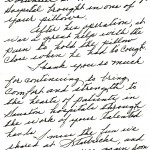 hospital brought in one of
your pillows.
After his operation, it
was a great help with the
pain to hold the pillow
close when he had to cough.
Thank you so much
for continuing to bring
comfort and strength to
the hearts of patients in
Houston hospitals through
the work of your talented
hands.
I miss the fun we
shared at